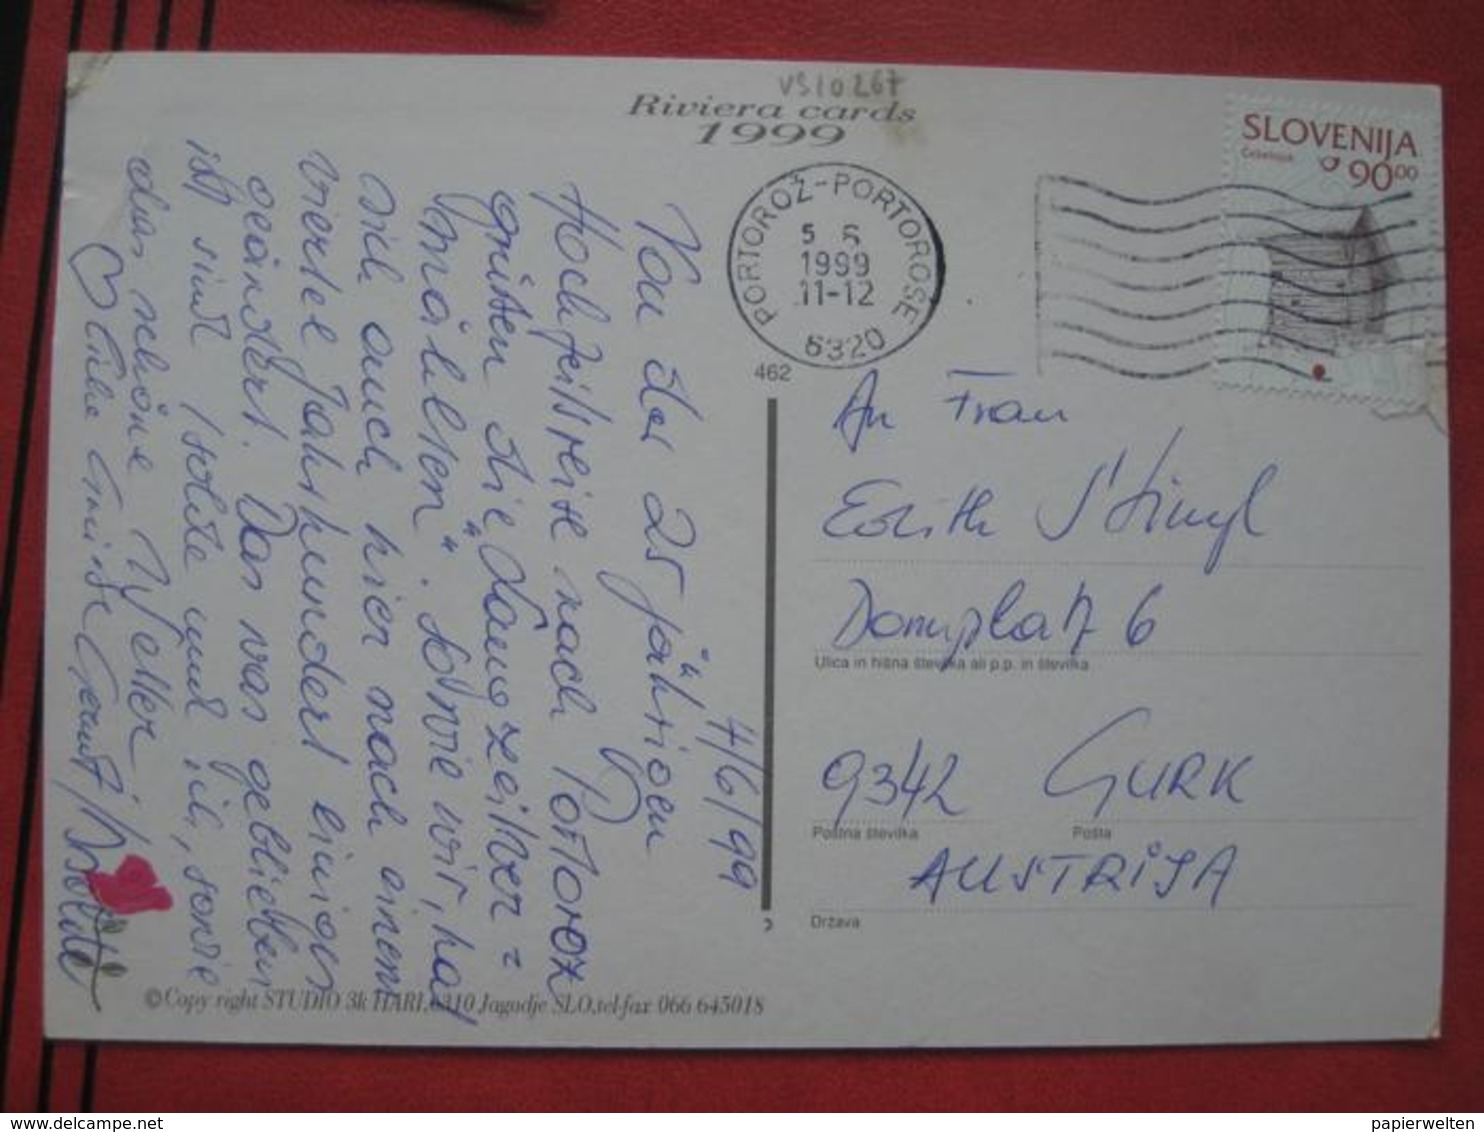 VS10267
Riviera cards
1999
SLOVENIJA
Čebelnjak
90.00
PORTOROŽ-PORTOROSE
5 6
1999
11-12
6320
462
4/6/99
Von der 25 jährigen
Hochzeitsreise nach Portoroz
grüßen die „Langzeitver=
mählten“. So wie wir, hat
sich auch hier nach einem
viertel Jahrhundert einiges
geändert. Das was geblieben
ist sind Isolde und ich, sowie
das schöne Wetter
Liebe Grüße Gernot / Isolde
An Frau
Edith Stingl
Domplatz 6
Ulica in hišna številka ali p.p. in številka
9342 GURK
Poštna številka Pošta
AUSTRIJA
Država
© Copy right STUDIO 3k HARI,6310 Jagodje SLO,tel-fax 066 645018
delcampe.net
papierwelten